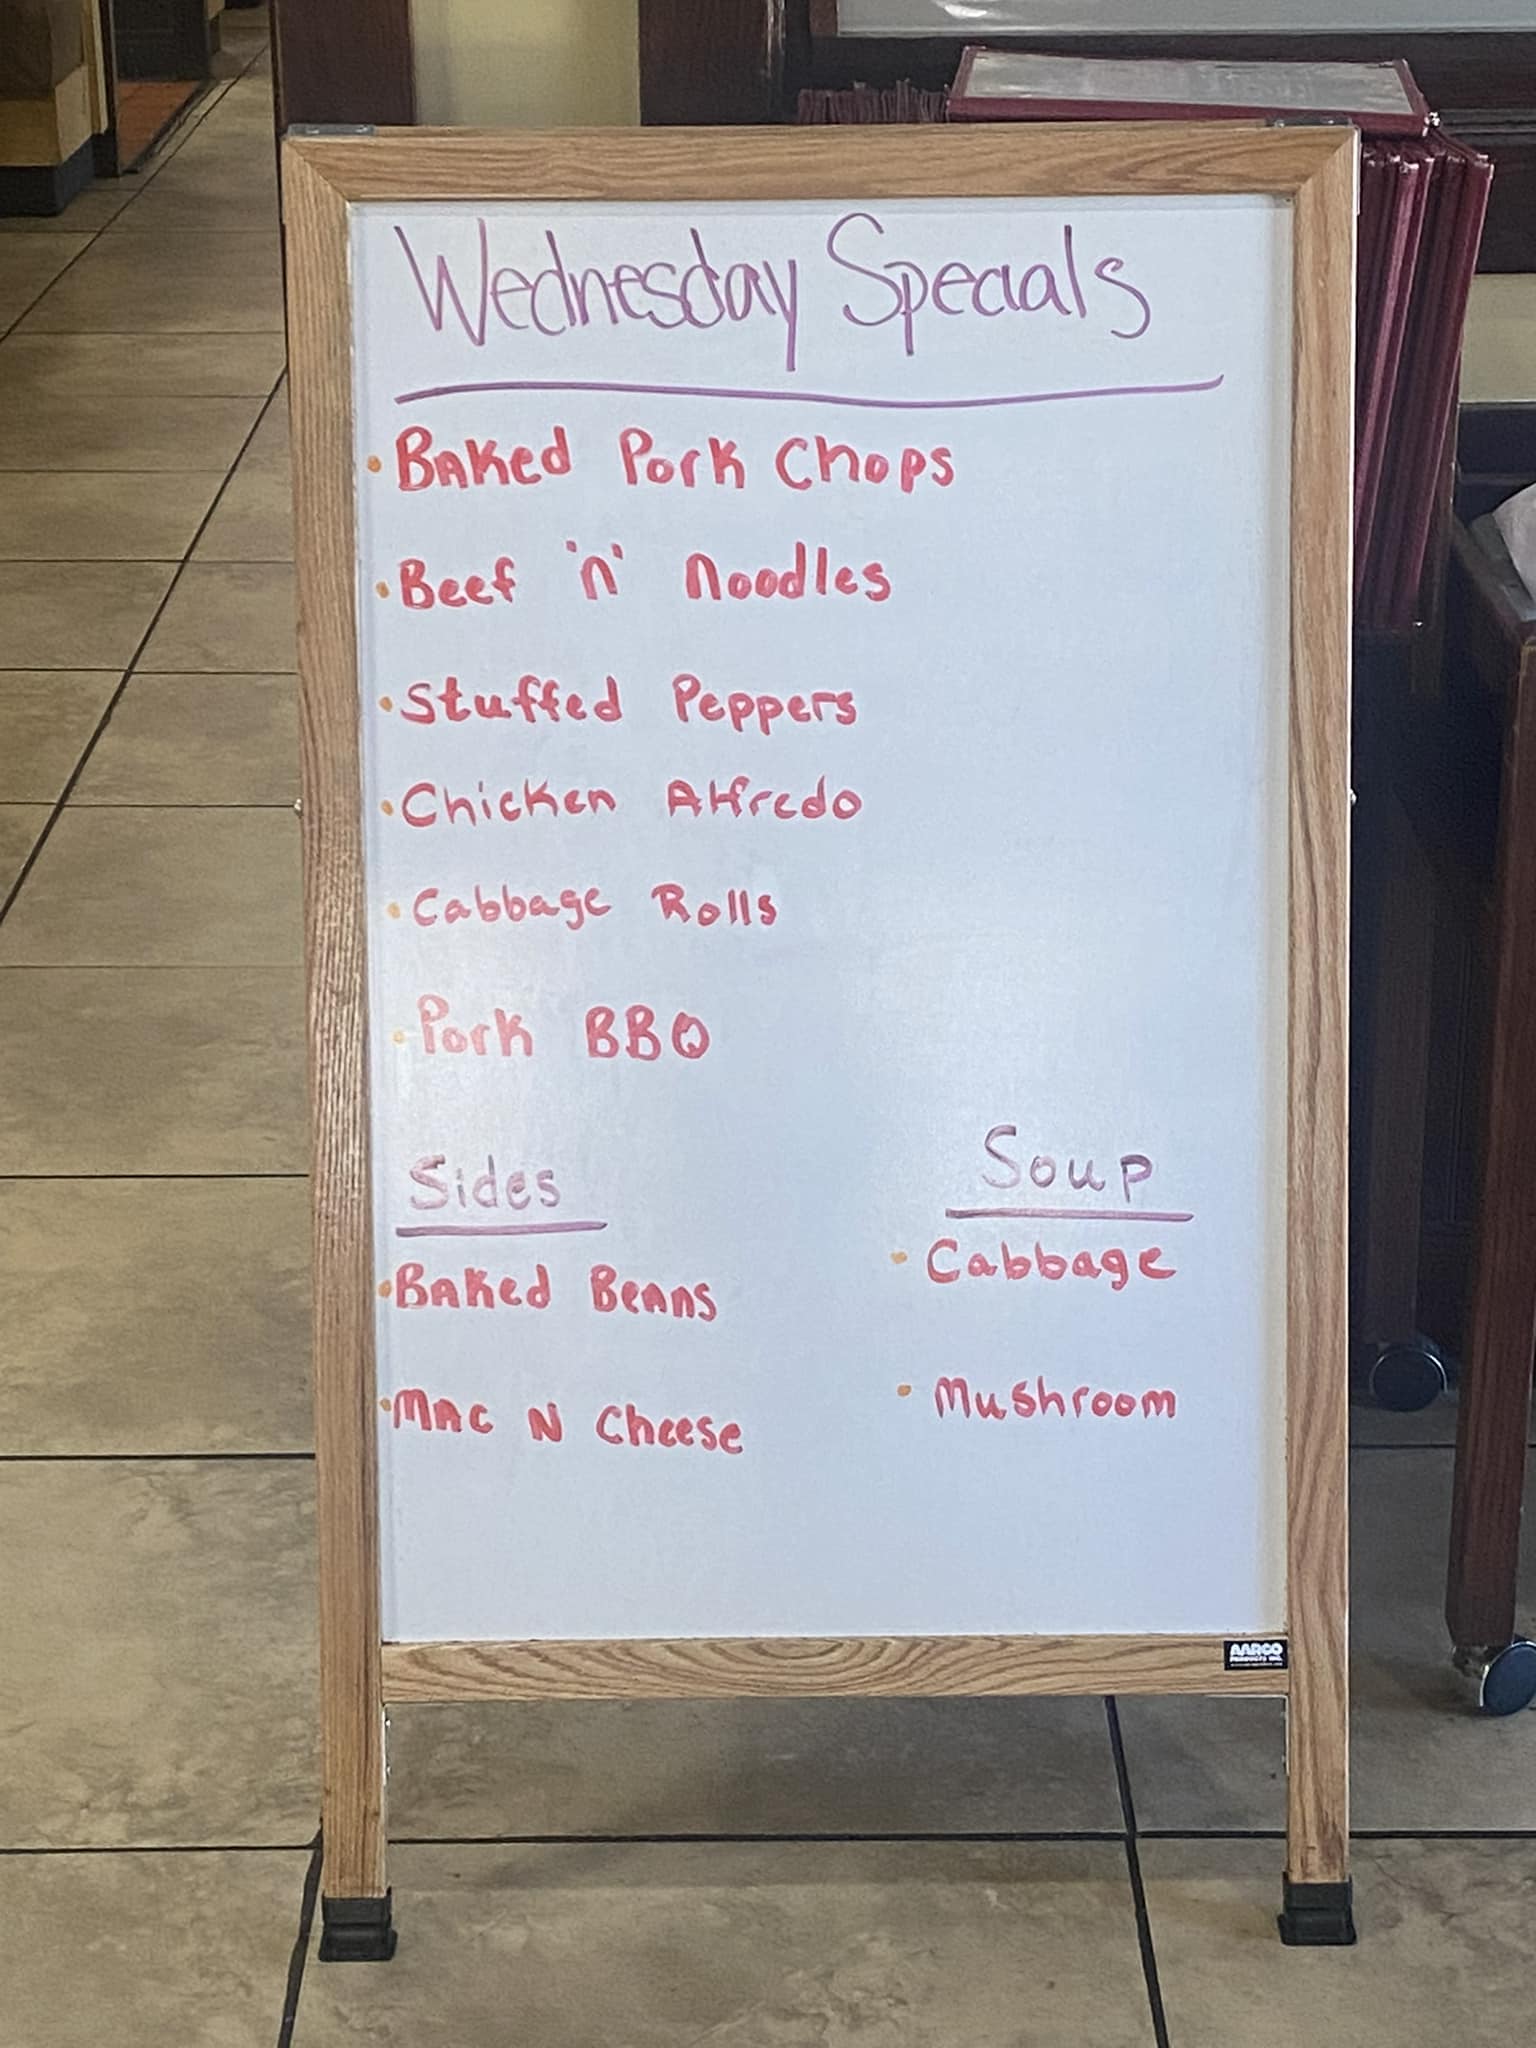 Wednesday Specials
• Baked Pork Chops
• Beef 'n' Noodles
• Stuffed Peppers
• Chicken Alfredo
• Cabbage Rolls
• Pork BBQ
Sides
• Baked Beans
• Mac N Cheese
Soup
• Cabbage
• Mushroom
AARCO
PRODUCTS INC.